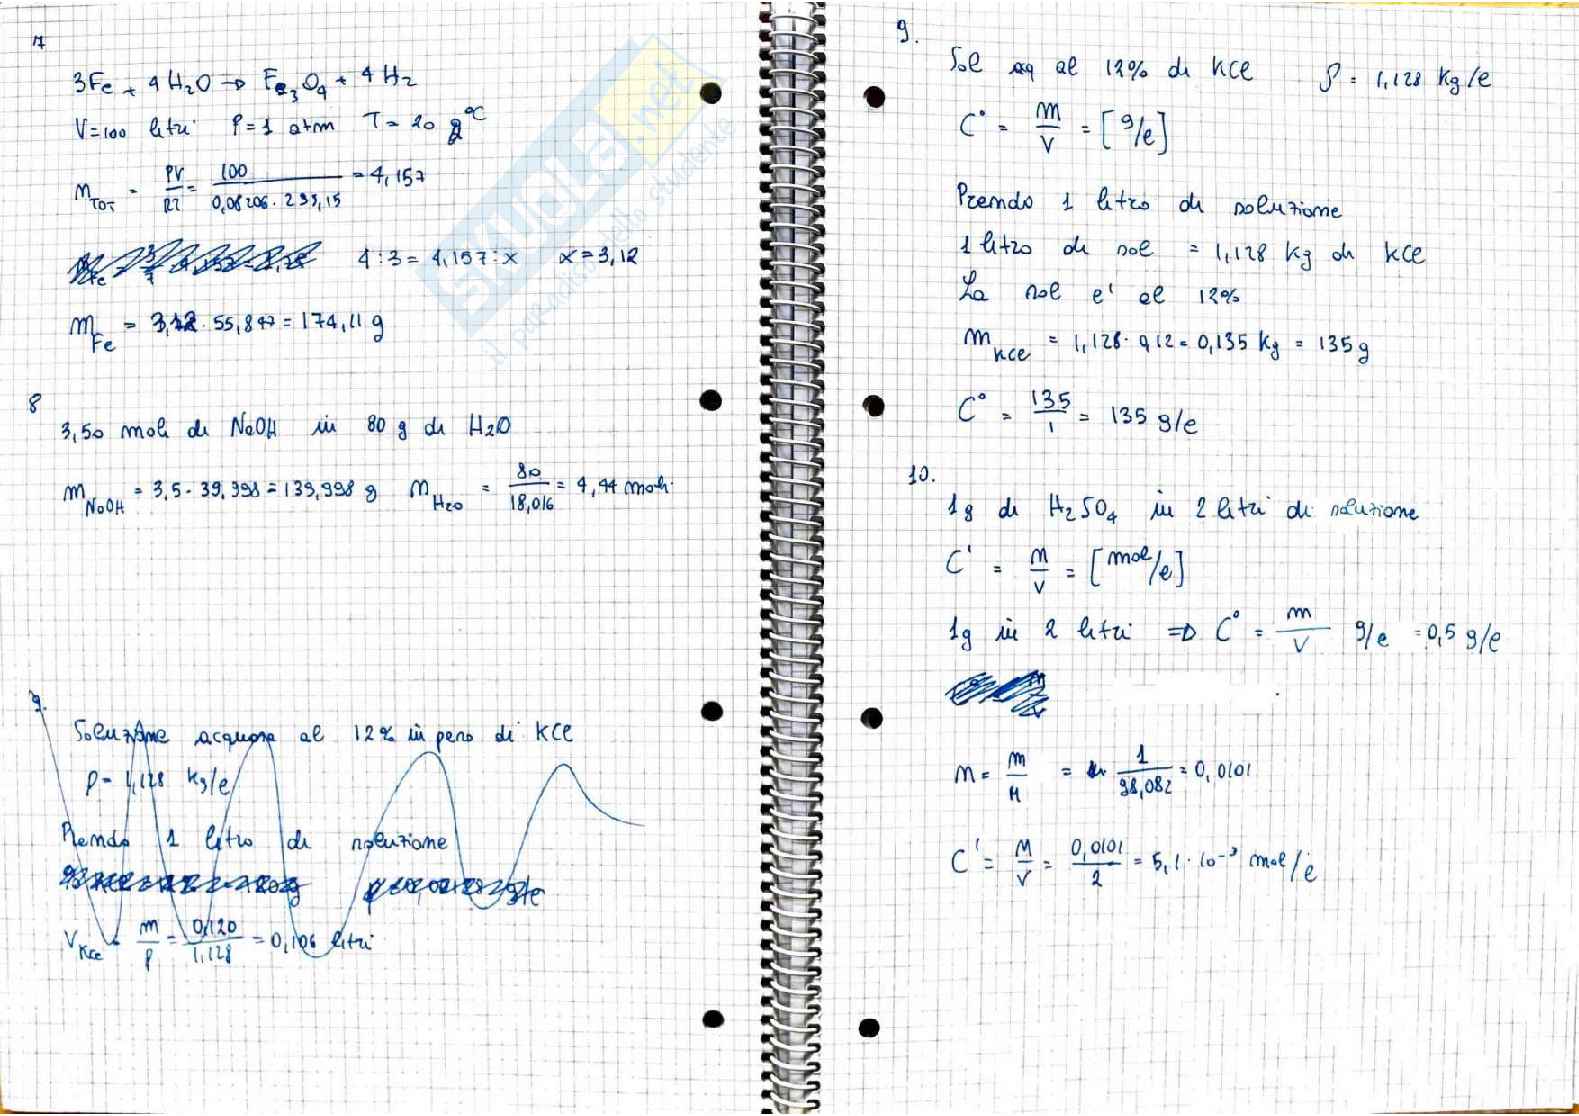 7
3Fe + 4H₂O → Fe₃O₄ + 4H₂
V=100 litri P=1 atm T=20 °C
n_TOT = PV/RT = 100/0,08206·293,15 = 4,157
4:3 = 4,157:x x=3,12
m_Fe = 3,12·55,847 = 174,11 g
8
3,50 moli di NaOH in 80 g di H₂O
m_NaOH = 3,5·39,998 = 139,998 g n_H₂O = 80/18,016 = 4,44 moli
9.
Soluzione acquosa al 12% in peso di KCl
ρ= 1,128 Kg/l
Prendo 1 litro di soluzione
V_KCl = m/ρ = 0,120/1,128 = 0,106 litri
9.
Sol aq al 12% di KCl ρ = 1,128 Kg/l
C° = m/V = [g/l]
Prendo 1 litro di soluzione
1 litro di sol = 1,128 Kg di KCl
La sol e' al 12%
m_KCl = 1,128·0,12 = 0,135 Kg = 135 g
C° = 135/1 = 135 g/l
10.
1g di H₂SO₄ in 2 litri di soluzione
C' = n/V = [mol/l]
1g in 2 litri ⇒ C° = m/V g/l = 0,5 g/l
n = m/M = 1/98,082 = 0,0101
C' = n/V = 0,0101/2 = 5,1·10⁻³ mol/l
SKUOLA.net
il paradiso dello studente